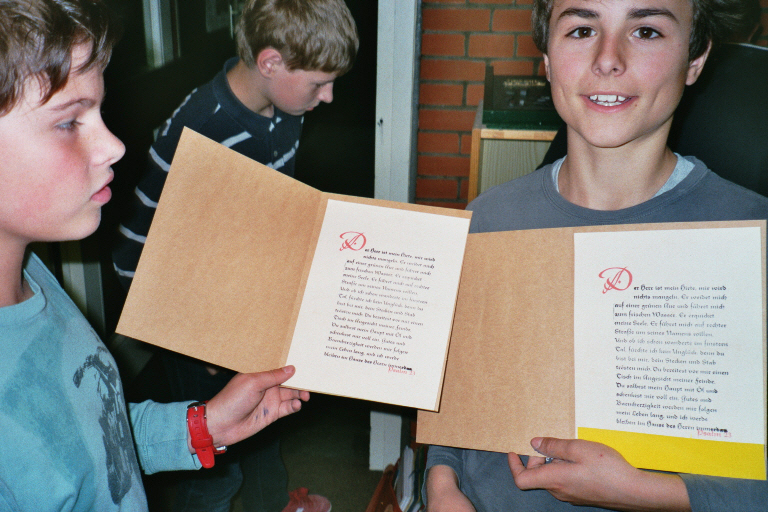 Der Herr ist mein Hirte, mir wird
nichts mangeln. Er weidet mich
auf einer grünen Aue und führet mich
zum frischen Wasser. Er erquicket
meine Seele. Er führet mich auf rechter
Straße um seines Namens willen.
Und ob ich schon wanderte im finstern
Tal, fürchte ich kein Unglück, denn du
bist bei mir, dein Stecken und Stab
trösten mich. Du bereitest vor mir einen
Tisch im Angesicht meiner Feinde.
Du salbest mein Haupt mit Öl und
schenkest mir voll ein. Gutes und
Barmherzigkeit werden mir folgen
mein Leben lang, und ich werde
bleiben im Hause des Herrn immerdar.
Psalm 23
Der Herr ist mein Hirte, mir wird
nichts mangeln. Er weidet mich
auf einer grünen Aue und führet mich
zum frischen Wasser. Er erquicket
meine Seele. Er führet mich auf rechter
Straße um seines Namens willen.
Und ob ich schon wanderte im finstern
Tal, fürchte ich kein Unglück, denn du
bist bei mir, dein Stecken und Stab
trösten mich. Du bereitest vor mir einen
Tisch im Angesicht meiner Feinde.
Du salbest mein Haupt mit Öl und
schenkest mir voll ein. Gutes und
Barmherzigkeit werden mir folgen
mein Leben lang, und ich werde
bleiben im Hause des Herrn immerdar.
Psalm 23